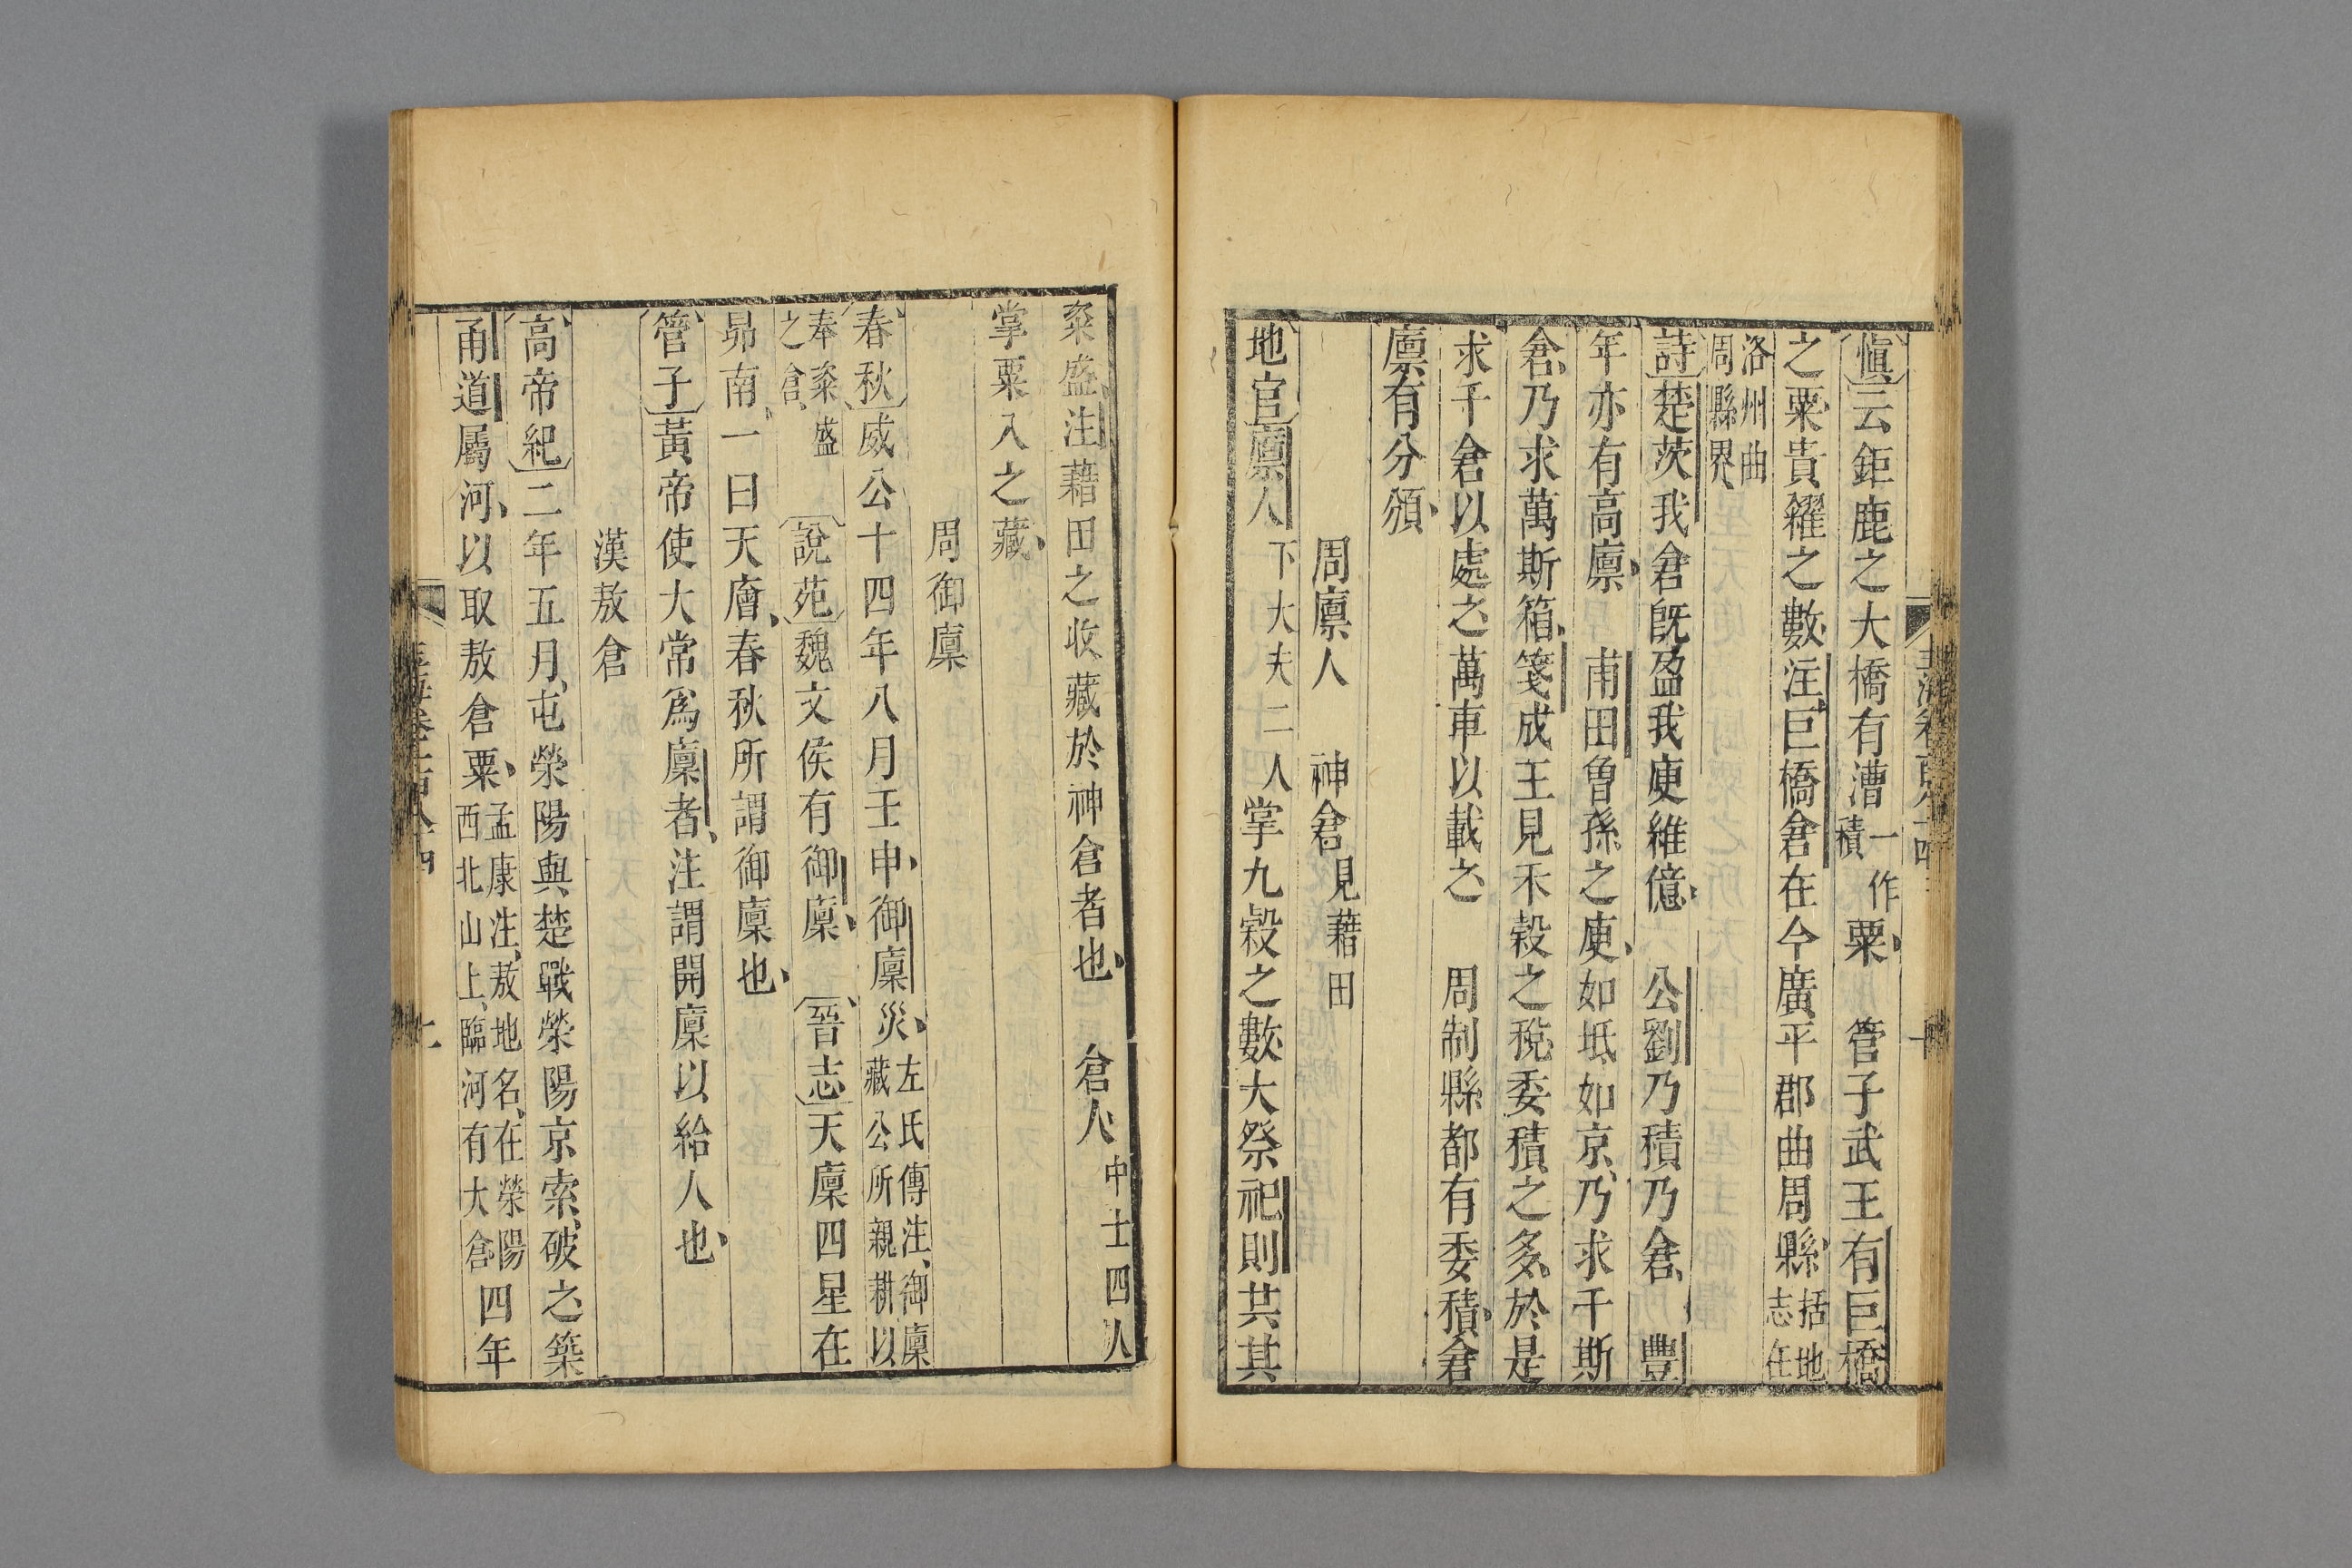 愼云鉅鹿之大橋有漕一作積粟　管子武王有巨橋
之粟貴糴之數注巨橋倉在今廣平郡曲周縣括地志在
洛州曲周縣界
詩楚茨我倉旣盈我庾維億　公劉乃積乃倉　豐
年亦有高廩　甫田曾孫之庾如坻如京乃求千斯
倉乃求萬斯箱箋成王見禾穀之稅委積之多於是
求千倉以處之萬車以載之　周制縣都有委積倉
廩有分頒
周廩人　神倉見藉田
地官廩人下大夫二人掌九穀之數大祭祀則共其
粢盛注藉田之收藏於神倉者也　倉人中士四人
掌粟入之藏
周御廩
春秋威公十四年八月壬申御廩災左氏傳注御廩藏公所親耕以
奉粢盛之倉　說苑魏文侯有御廩　晉志天廩四星在
昴南一曰天廥春秋所謂御廩也
管子黃帝使大常爲廩者注謂開廩以給人也
漢敖倉
高帝紀二年五月屯滎陽與楚戰滎陽京索破之築
甬道屬河以取敖倉粟孟康注敖地名在滎陽西北山上臨河有大倉四年